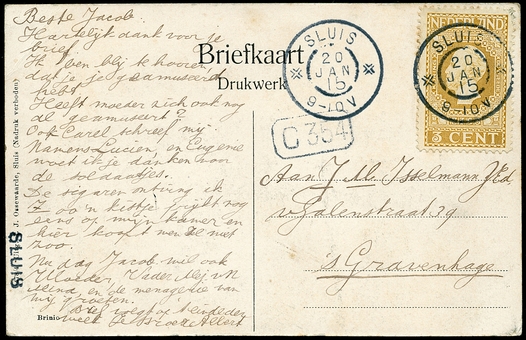 Beste Jacob.
Hartelijk dank voor je
brief.
Ik ben blij te hooren
dat je je geamuseerd
hebt.
Heeft moeder zich ook nog
al geamuseert?
Ook Carel schreef mij
Namens Lucien, en Eugenie
moet ik je danken voor
de soldaatjes.
De sigaren ontving ik
Zoo'n kistje ligt nog
eens op mijn kamer en
hier koopt men ze niet
zoo.
Nu dag Jacob wil ook
Moeder, Vader,
en de menagerie van
mij groeten.
week
Brinio
J. Ossewaarde, Sluis (Nadruk verboden)
SLUIS
Briefkaart
Drukwerk
SLUIS
20
JAN
15
9-10V
C 354
NEDERLAND
SLUIS
20
JAN
15
9-10V
CENT
Aan J. M. IJsselmann JEd
v Galenstraat 29
's Gravenhage